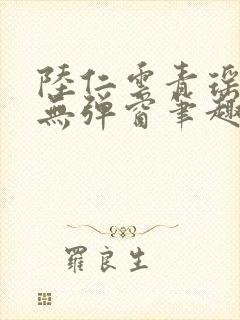 陸仁雲青瑶
無彈窗筆趣
羅良生